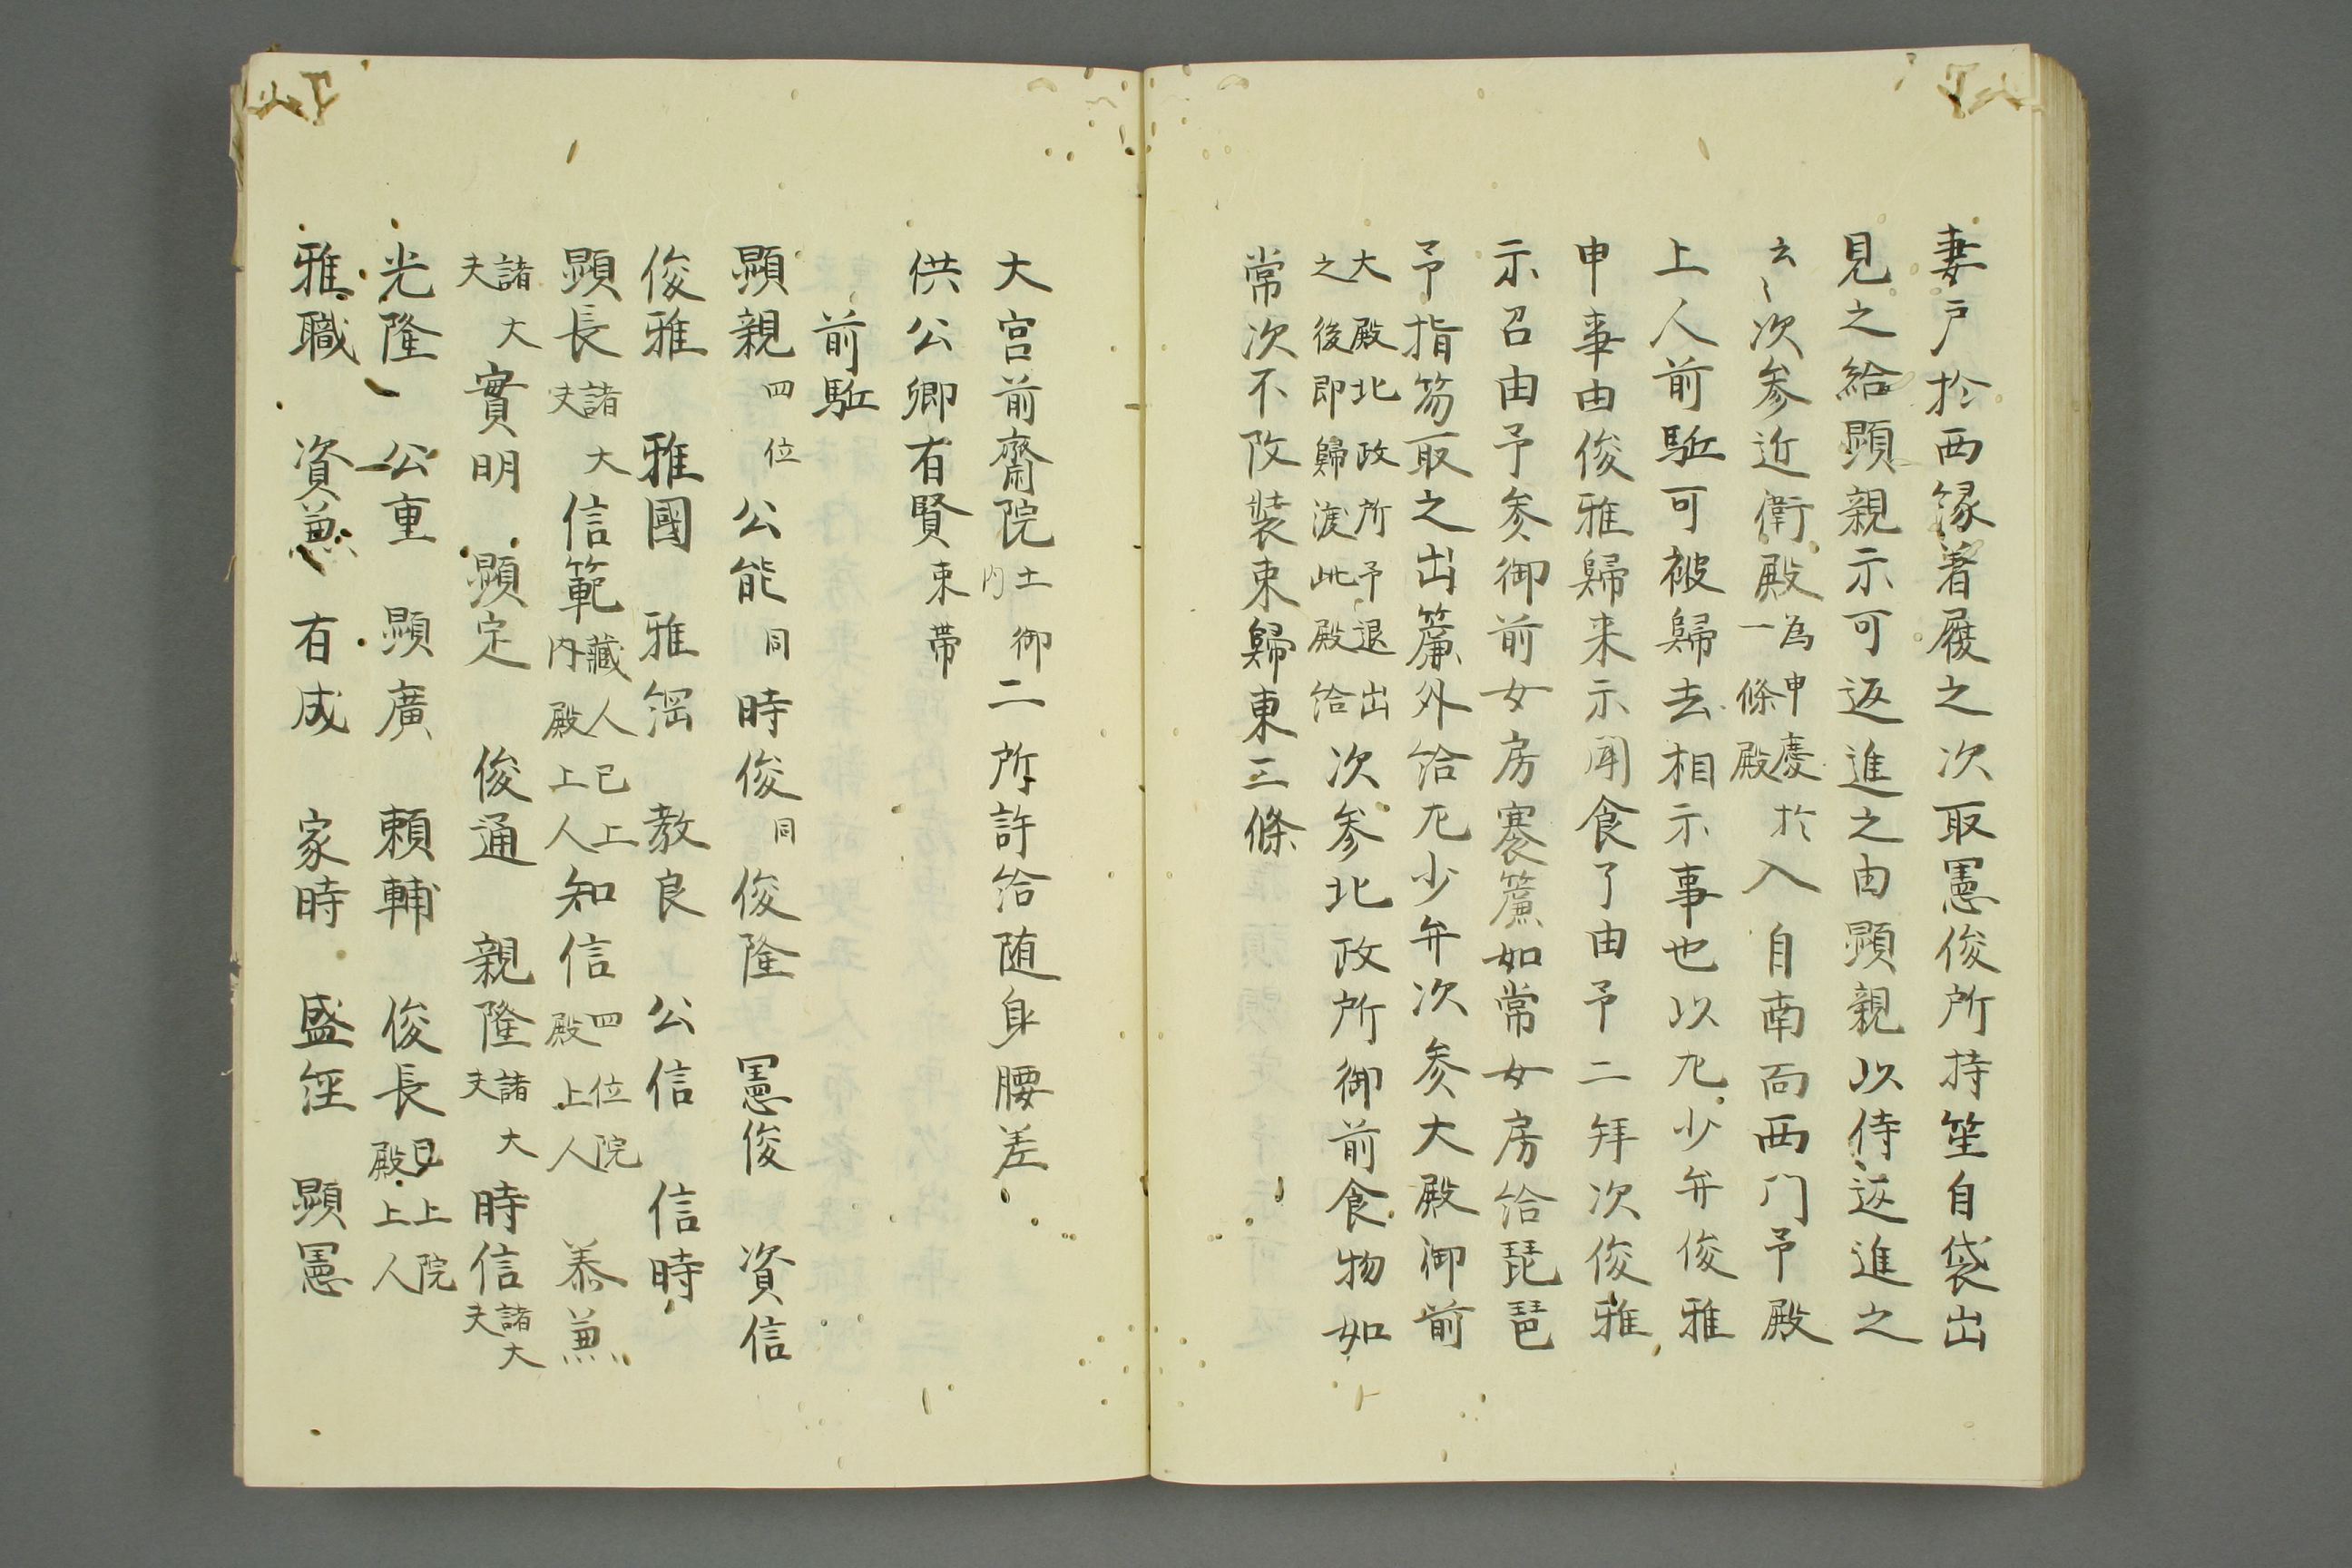 妻戸於西縁着履之次取憲俊所持笙自袋出
見之給顕親示可返進之由顕親以侍返進之
云々次参近衛殿為申慶於一條殿入自南面西門予殿
上人前駈可被歸去相示事也以尢少弁俊雅
申事由俊雅歸来示聞食了由予二拜次俊雅
示召由予参御前女房褰簾如常女房給琵琶
予指笏取之出簾外給尢少弁次参大殿御前
大殿北政所予退出之後即歸渡此殿給次参北政所御前食物如
常次不改装束歸東三條
大宮前齋院土御内二所許給随身腰差
供公卿有賢束帯
前駈
顕親四位 公能同 時俊同 俊隆 憲俊 資信
俊雅 雅國 雅綱 教良 公信 信時
顕長諸大夫 信範藏人已上内殿上人 知信四位院殿上人 恭兼
諸大夫 實明 顕定 俊通 親隆諸大夫 時信諸大夫
光隆 公重 顕廣 頼輔 俊長已上院殿上人
雅職 資兼 有成 家時 盛経 顕憲